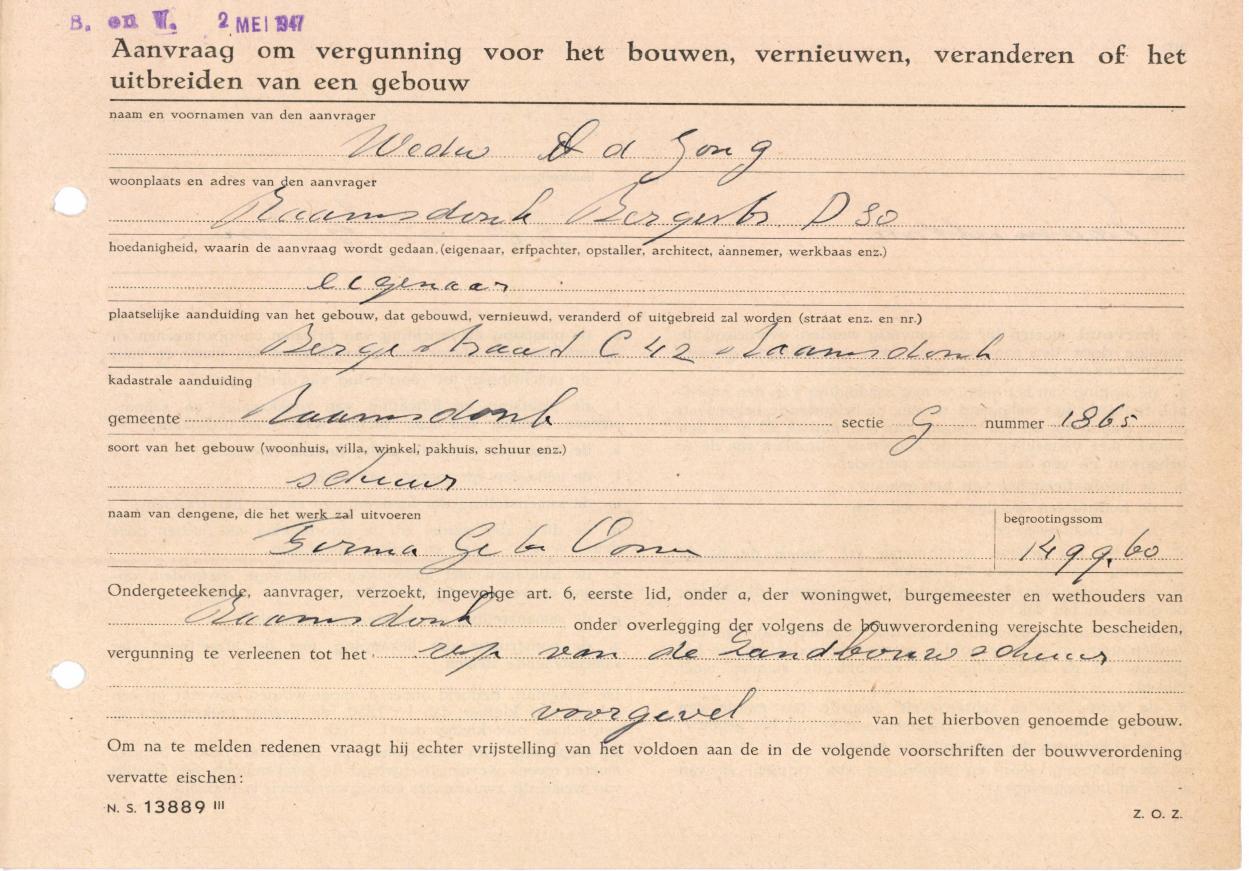 B. en W. 2 MEI 1947
Aanvraag om vergunning voor het bouwen, vernieuwen, veranderen of het
uitbreiden van een gebouw
naam en voornamen van den aanvrager
Wedu A d Jong
woonplaats en adres van den aanvrager
Raamsdonk Bergestr. D 30
hoedanigheid, waarin de aanvraag wordt gedaan (eigenaar, erfpachter, opstaller, architect, aannemer, werkbaas enz.)
eigenaar
plaatselijke aanduiding van het gebouw, dat gebouwd, vernieuwd, veranderd of uitgebreid zal worden (straat enz. en nr.)
Bergestraat C 42 Raamsdonk
kadastrale aanduiding
gemeente Raamsdonk sectie G nummer 1865
soort van het gebouw (woonhuis, villa, winkel, pakhuis, schuur enz.)
schuur
naam van dengene, die het werk zal uitvoeren begrootingssom
Firma Gebr 1499.60
Ondergeteekende, aanvrager, verzoekt, ingevolge art. 6, eerste lid, onder a, der woningwet, burgemeester en wethouders van
Raamsdonk onder overlegging der volgens de bouwverordening vereischte bescheiden,
vergunning te verleenen tot het rep van de Landbouwschuur
voorgevel van het hierboven genoemde gebouw.
Om na te melden redenen vraagt hij echter vrijstelling van het voldoen aan de in de volgende voorschriften der bouwverordening
vervatte eischen:
N. S. 13889 III Z. O. Z.